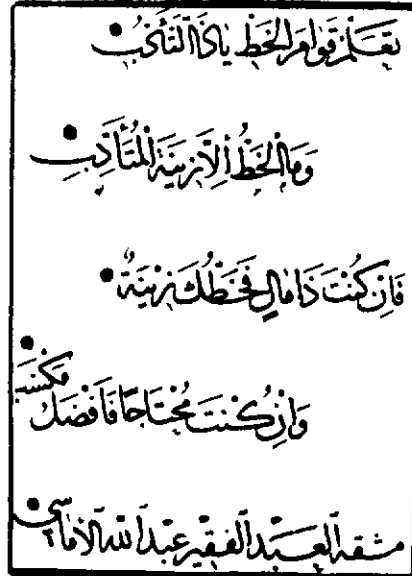 تعلم قوام الخط ياذا التأدب
وما الخط إلا زينة المتأدب
فان كنت ذا مال فخطك زينة
وان كنت محتاجا فافضل مكسب
مشقه العبد الفقير عبد الله الاماسي